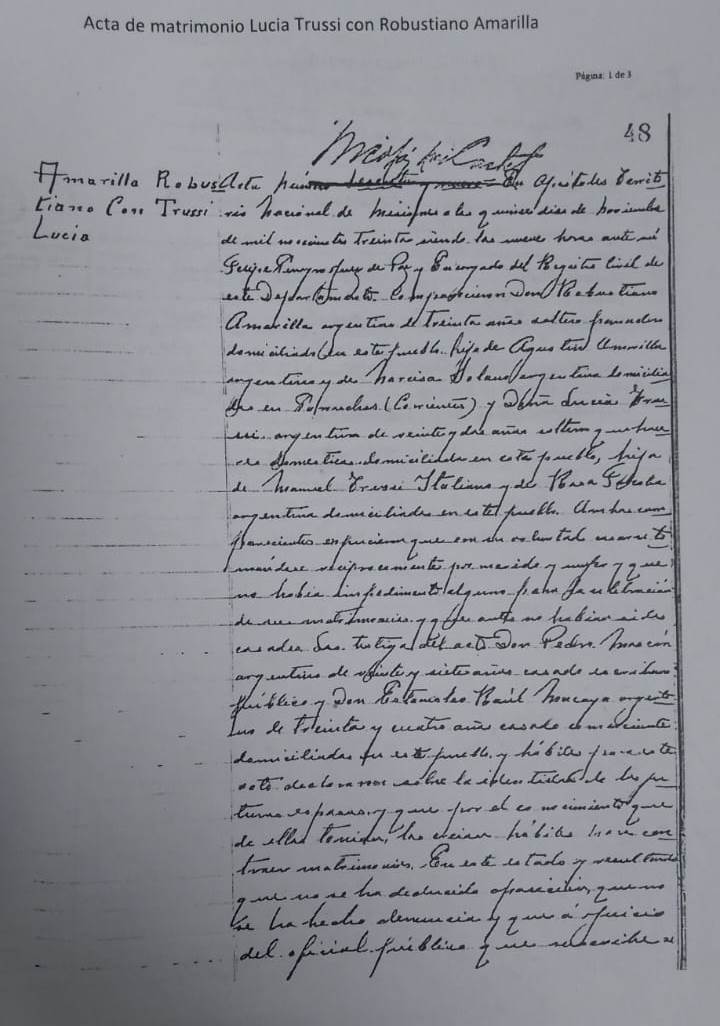 Acta de matrimonio Lucia Trussi con Robustiano Amarilla
Página: 1 de 3
48
Amarilla Robus
tiano Con Trussi
Lucia
Acta número En Apóstoles Territo
rio Nacional de Misiones a los quince dias de Noviembre
de mil novecientos treinta siendo las nueve horas ante mi
Felipe Juez de Paz y Encargado del Registro Civil de
este Departamento. Comparecieron Don Robustiano
Amarilla argentino de treinta años soltero
domiciliado en este pueblo. hijo de Agustin Amarilla
argentino y de Narcisa Solano argentina domicilia
dos en (Corrientes) y Doña Lucia Tru
ssi argentina de veinte y dos años soltera quehace
res domesticos domiciliada en este pueblo, hija
de Manuel Trussi Italiano y de Rosa
argentina domiciliados en este pueblo. Ambos com
parecientes expusieron que con su voluntad
reciprocamente por marido y mujer y que
no habia impedimento alguno para la celebración
de su matrimonio y que antes no habian sido
casados. Los testigos del acto Don Pedro
argentino de veinte y siete años casado escribano
público y Don Estanislao Raúl Moncaya argenti
no de treinta y cuatro años casado comerciante
domiciliados en este pueblo, y hábiles para este
acto declararon sobre la identidad de los fu
turos esposos, y que por el conocimiento que
de ellos tenian, los creian hábiles para con
traer matrimonio. En este estado y resultando
que no se ha deducido oposicion, que no
se ha hecho denuncia y que á juicio
del oficial público que suscribe